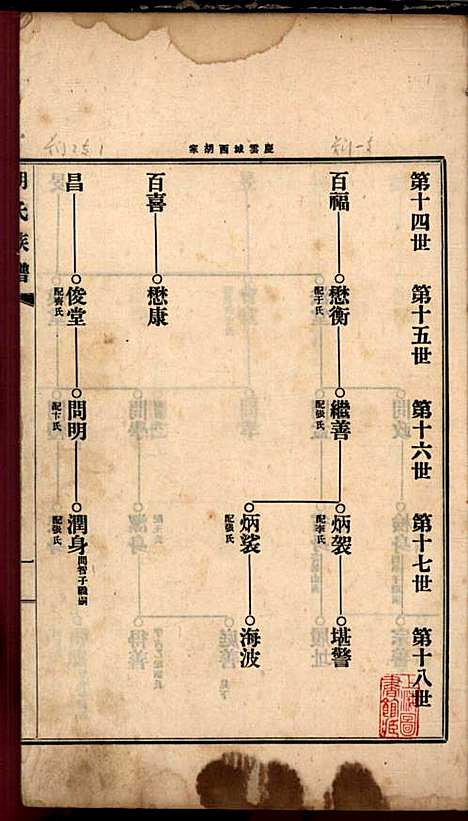 慶雲城西胡家
第十四世
第十五世
第十六世
第十七世
第十八世
百福
懋衡
配于氏
繼善
配張氏
炳袈
配李氏
堪警
炳裟
配張氏
海波
百喜
懋康
昌
俊堂
配齊氏
問明
配卞氏
潤身
問智子職嗣
配張氏
胡氏族譜
一